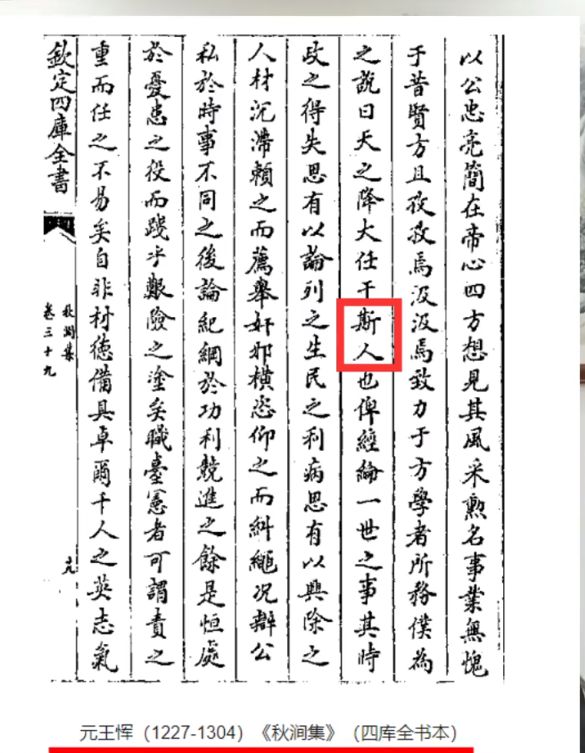 以公忠亮簡在帝心四方想見其風采勲名事業無愧
于昔賢方且孜孜焉汲汲焉致力于方學者所務僕為
之說曰天之降大任于斯人也俾經綸一世之事其時
政之得失思有以論列之生民之利病思有以興除之
人材沉滯賴之而薦舉奸邪橫恣仰之而糾繩况辯公
私於時事不同之後論紀綱於功利競進之餘是恒處
於憂患之役而踐乎艱險之塗矣職臺憲者可謂責之
重而任之不易矣自非材徳備具卓爾千人之英志氣
欽定四庫全書
秋澗集
卷三十九
元王恽（1227-1304）《秋涧集》（四库全书本）